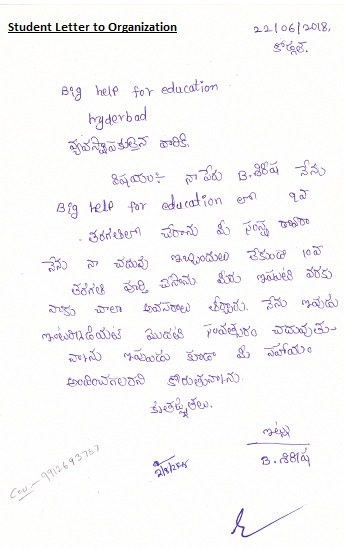 Student Letter to Organization
22/06/2018,
కోడ్గల్.
Big help for education
hyderbad
వ్యవస్థాపకులైన వారికి.
విషయం:- నా పేరు B.శిరీష నేను
Big help for education లో 9వ
తరగతిలో చేరాను మీ సంస్థ ద్వారా
నేను నా చదువు ఇబ్బందులు లేకుండా 10వ
తరగతి పూర్తి చేసాను మీరు ఇప్పటి వరకు
నాకు చాలా అవసరాలు తీర్చారు. నేను ఇప్పుడు
ఇంటర్మీడియట్ మొదటి సంవత్సరం చదువుతు-
న్నాను ఇప్పుడు కూడా మీ సహాయం
అందించగలరని కోరుతున్నాను.
కృతజ్ఞతలు.
ఇట్లు
B.శిరీష